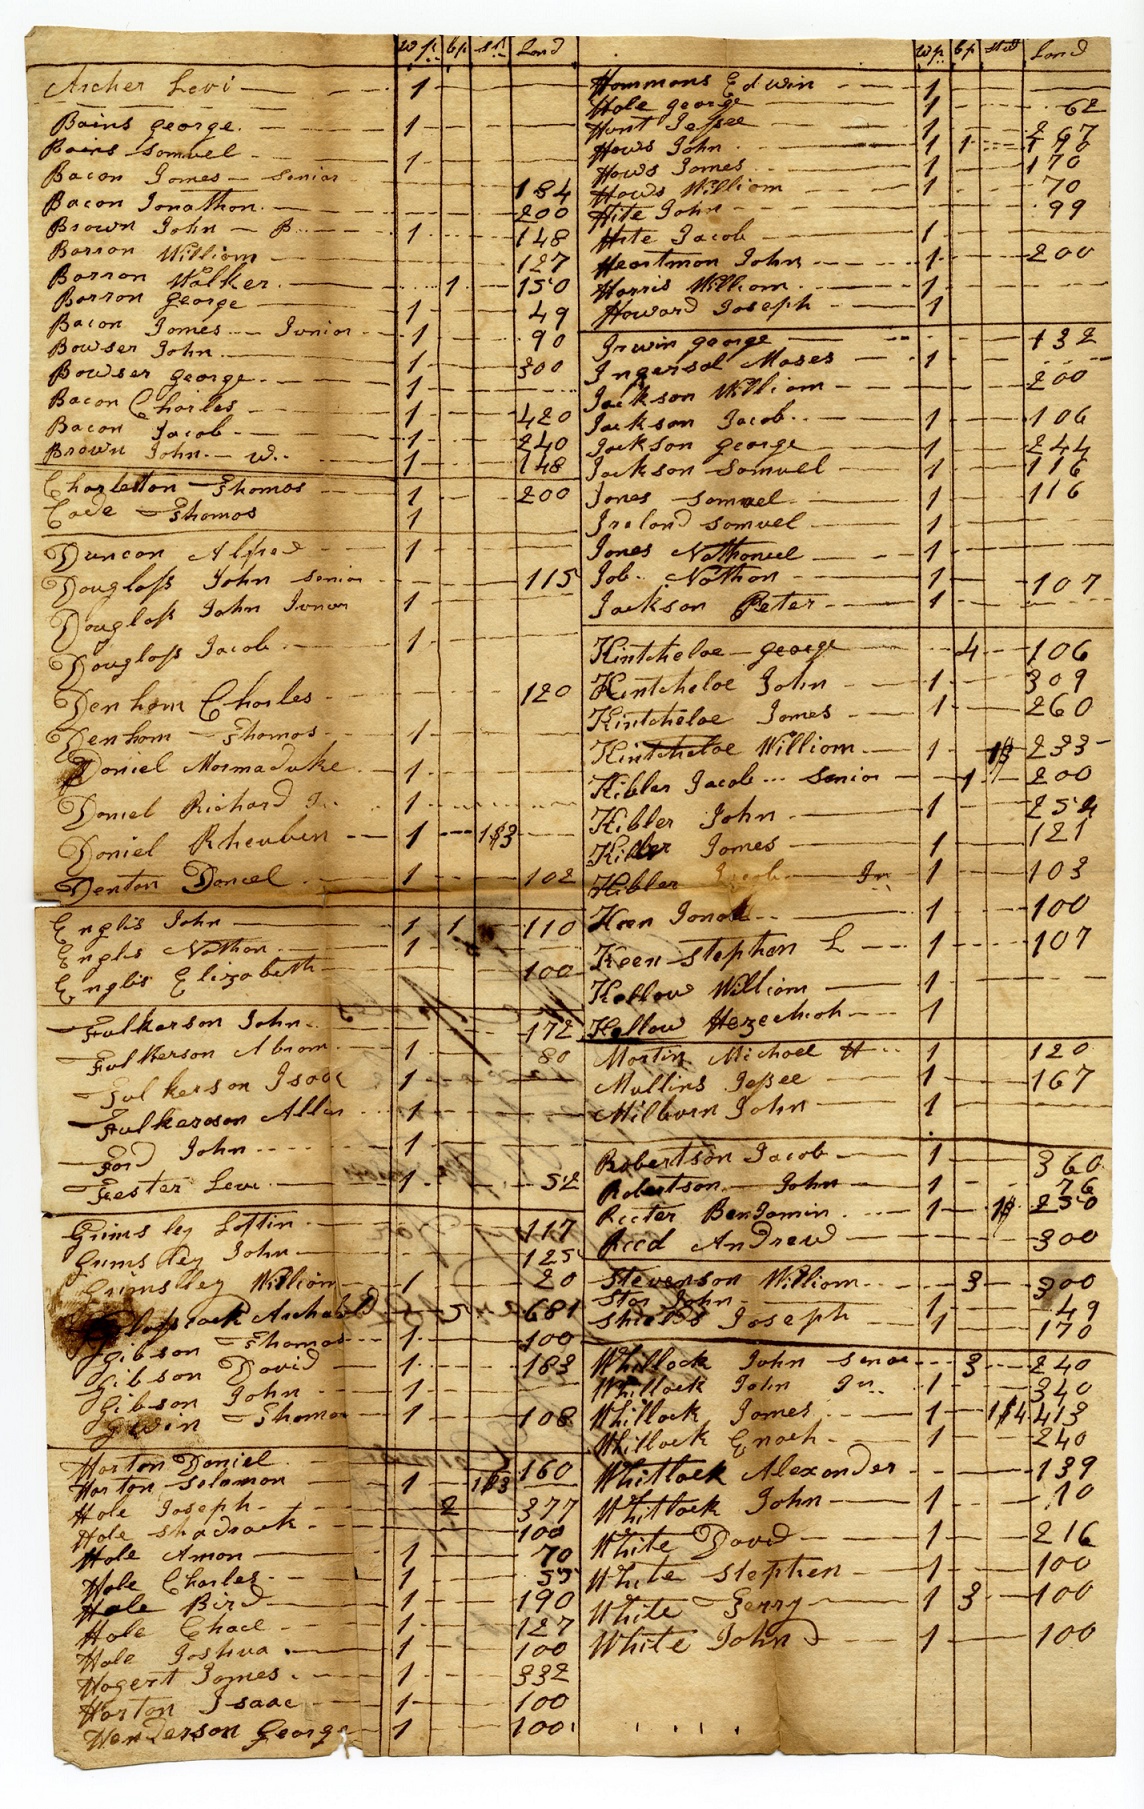 wp. bp std Land
Archer Levi 1
Bains george. 1
Bains Samuel 1
Bacon James Senior 184
Bacon Jonathan. 200
Brown John B 1 148
Barron William 127
Barron Walker. 1 150
Barron george 1 49
Bacon James Junior 1 90
Bowser John 1 300
Bowser george. 1
Bacon Charles 1 420
Bacon Jacob 1 240
Brown John. W. 1 148
Charleston Thomas 1 200
Cade Thomas 1
Duncan Alfred 1
Douglass John Senior 115
Douglass John Junior 1
Douglass Jacob 1
Denham Charles 120
Denham Thomas 1
Daniel Marmaduke 1
Daniel Richard Jr. 1
Daniel Rheuben 1 1$3
Denton Daniel 1 102
Englis John 1 1 110
Englis Nathan 1
Englis Elizabeth 100
Fulkerson John 172
Fulkerson Abram 1 80
Fulkerson Isaac 1
Fulkerson Allen 1
Ford John 1
Fester Levi 1 52
Grimsley Loftin 117
Grimsley John 125
Grimsley William 1 20
Archabald 1 5 681
Gibson Thomas 1 100
Gibson David 1 183
Gibson John 1
Gwin Thomas 1 108
Harton Daniel 160
Harton Solomon 1 1$3
Hale Joseph 2 377
Hale Shadrack 100
Hale Amon 1 70
Hale Charles 1 55
Hale Bird 1 190
Hale Chace 1 127
Hale Joshua 1 100
Hagert James 1 332
Harton Isaac 1 100
Henderson George 1 100
wp. bp std Land
Hammons Edwin 1
Hale george 1 62
Hunt Jessee 1 267
Haws John 1 1 190
Haws James 1 170
Haws William 1 70
Hite John 99
Hite Jacob 1
Heartman John 1 200
Harris William 1
Howard Joseph 1
Irwin george 132
Ingersol Moses 1
Jackson William 200
Jackson Jacob 1 106
Jackson george 1 244
Jackson Samuel 1 116
Jones Samuel 1 116
Ireland Samuel 1
Jones Nathaniel 1
Job. Nathan 1 107
Jackson Peter 1
Kintcheloe george 4 106
Kintcheloe John 1 309
Kintcheloe James 1 260
Kintcheloe William 1 1$ 233
Kibler Jacob Senior 1 200
Kibler John 1 254
Kibler James 1 121
Kibler Jacob Jn 1 103
Keen Jonah 1 100
Keen Stephen L 1 107
Kellow William 1
Kellow Hezechiah 1
Martin Michael H 1 120
Mullins Jessee 1 167
Milburn John 1
Robertson Jacob 1 360
Robertson John 1 76
Reeter Benjamin 1 1$ 250
Reed Andrew 300
Stevenson William 3 300
Star John 1 49
Shields Joseph 1 170
Whitlock John Senor 3 240
Whitlock John Jn. 1 340
Whitlock James 1 1$4 413
Whitlock Enoch 1 240
Whitlock Alexander 139
Whitlock John 1 10
White David 1 216
White Stephen 1 100
White Terry 1 3 100
White John 1 100